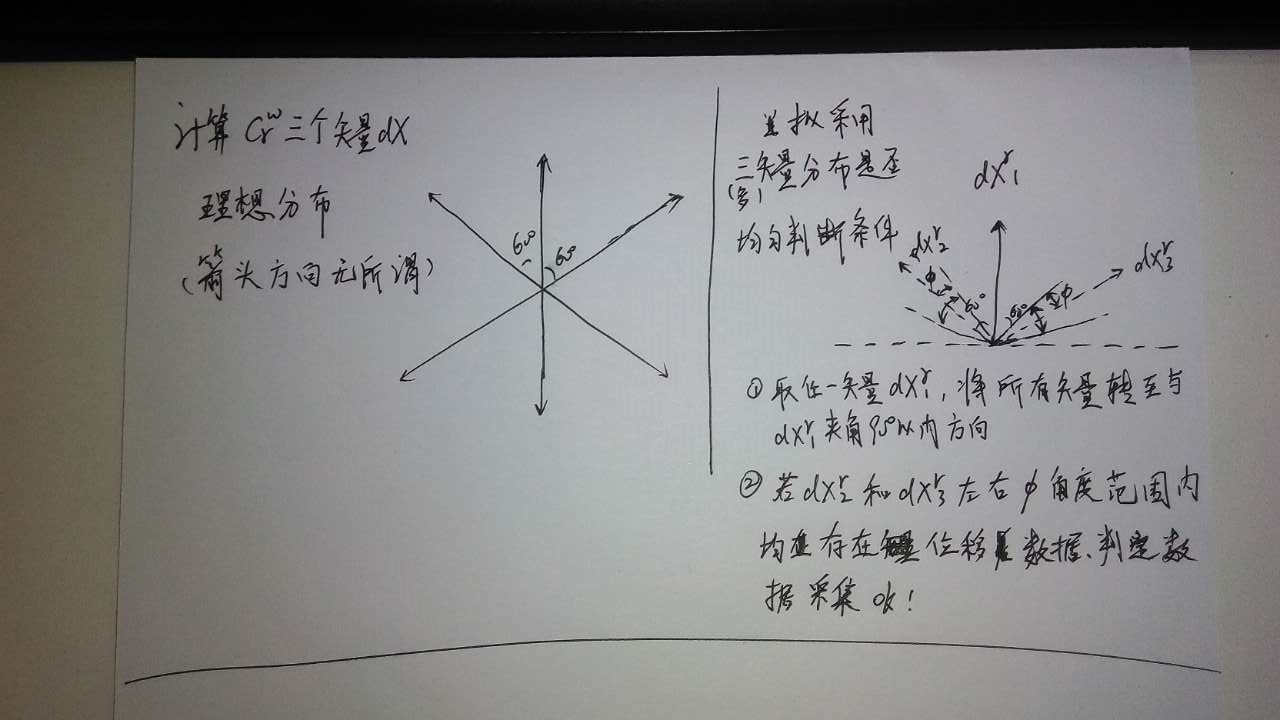 计算 Crʷ 三个矢量dX
理想分布
(箭头方向无所谓)
60°
60°
拟采用
三矢量分布是否
(多)
均匀判断条件
dX₁ʳ
dX₂ʳ
dX₃ʳ
φ
60°
60°
φ
① 取任一矢量dX₁ʳ,将所有矢量转至与
dX₁ʳ夹角90°以内方向
② 若dX₂ʳ和dX₃ʳ左右φ角度范围内
均存在位移数据、判定数
据采集ok!